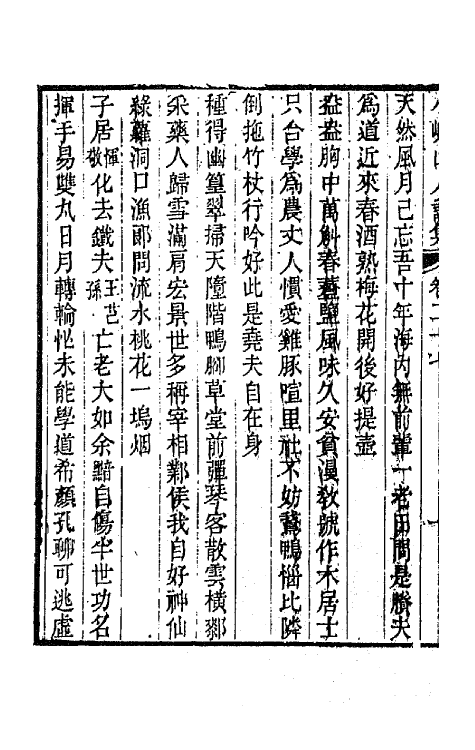 天然風月已忘吾十年海內無前輩一老田間是勝夫
爲道近來春酒熟梅花開後好提壺
盎盎胸中萬斛春虀鹽風味久安貧漫敎號作木居士
只合學爲農丈人慣愛雞豚喧里社不妨鵞鴨惱比隣
倒拖竹杖行吟好此是堯夫自在身
種得幽篁翠掃天隨階鴨腳草堂前彈琴客散雲橫
采藥人歸雪滿肩宏景世多稱宰相鄴侯我自好神仙
綠蘿洞口漁郞問流水桃花一塢烟
子居惲敬化去鐵夫王芑孫亡老大如余黯自傷半世功名
揮手易雙丸日月轉輪忙未能學道希顏孔聊可逃虛